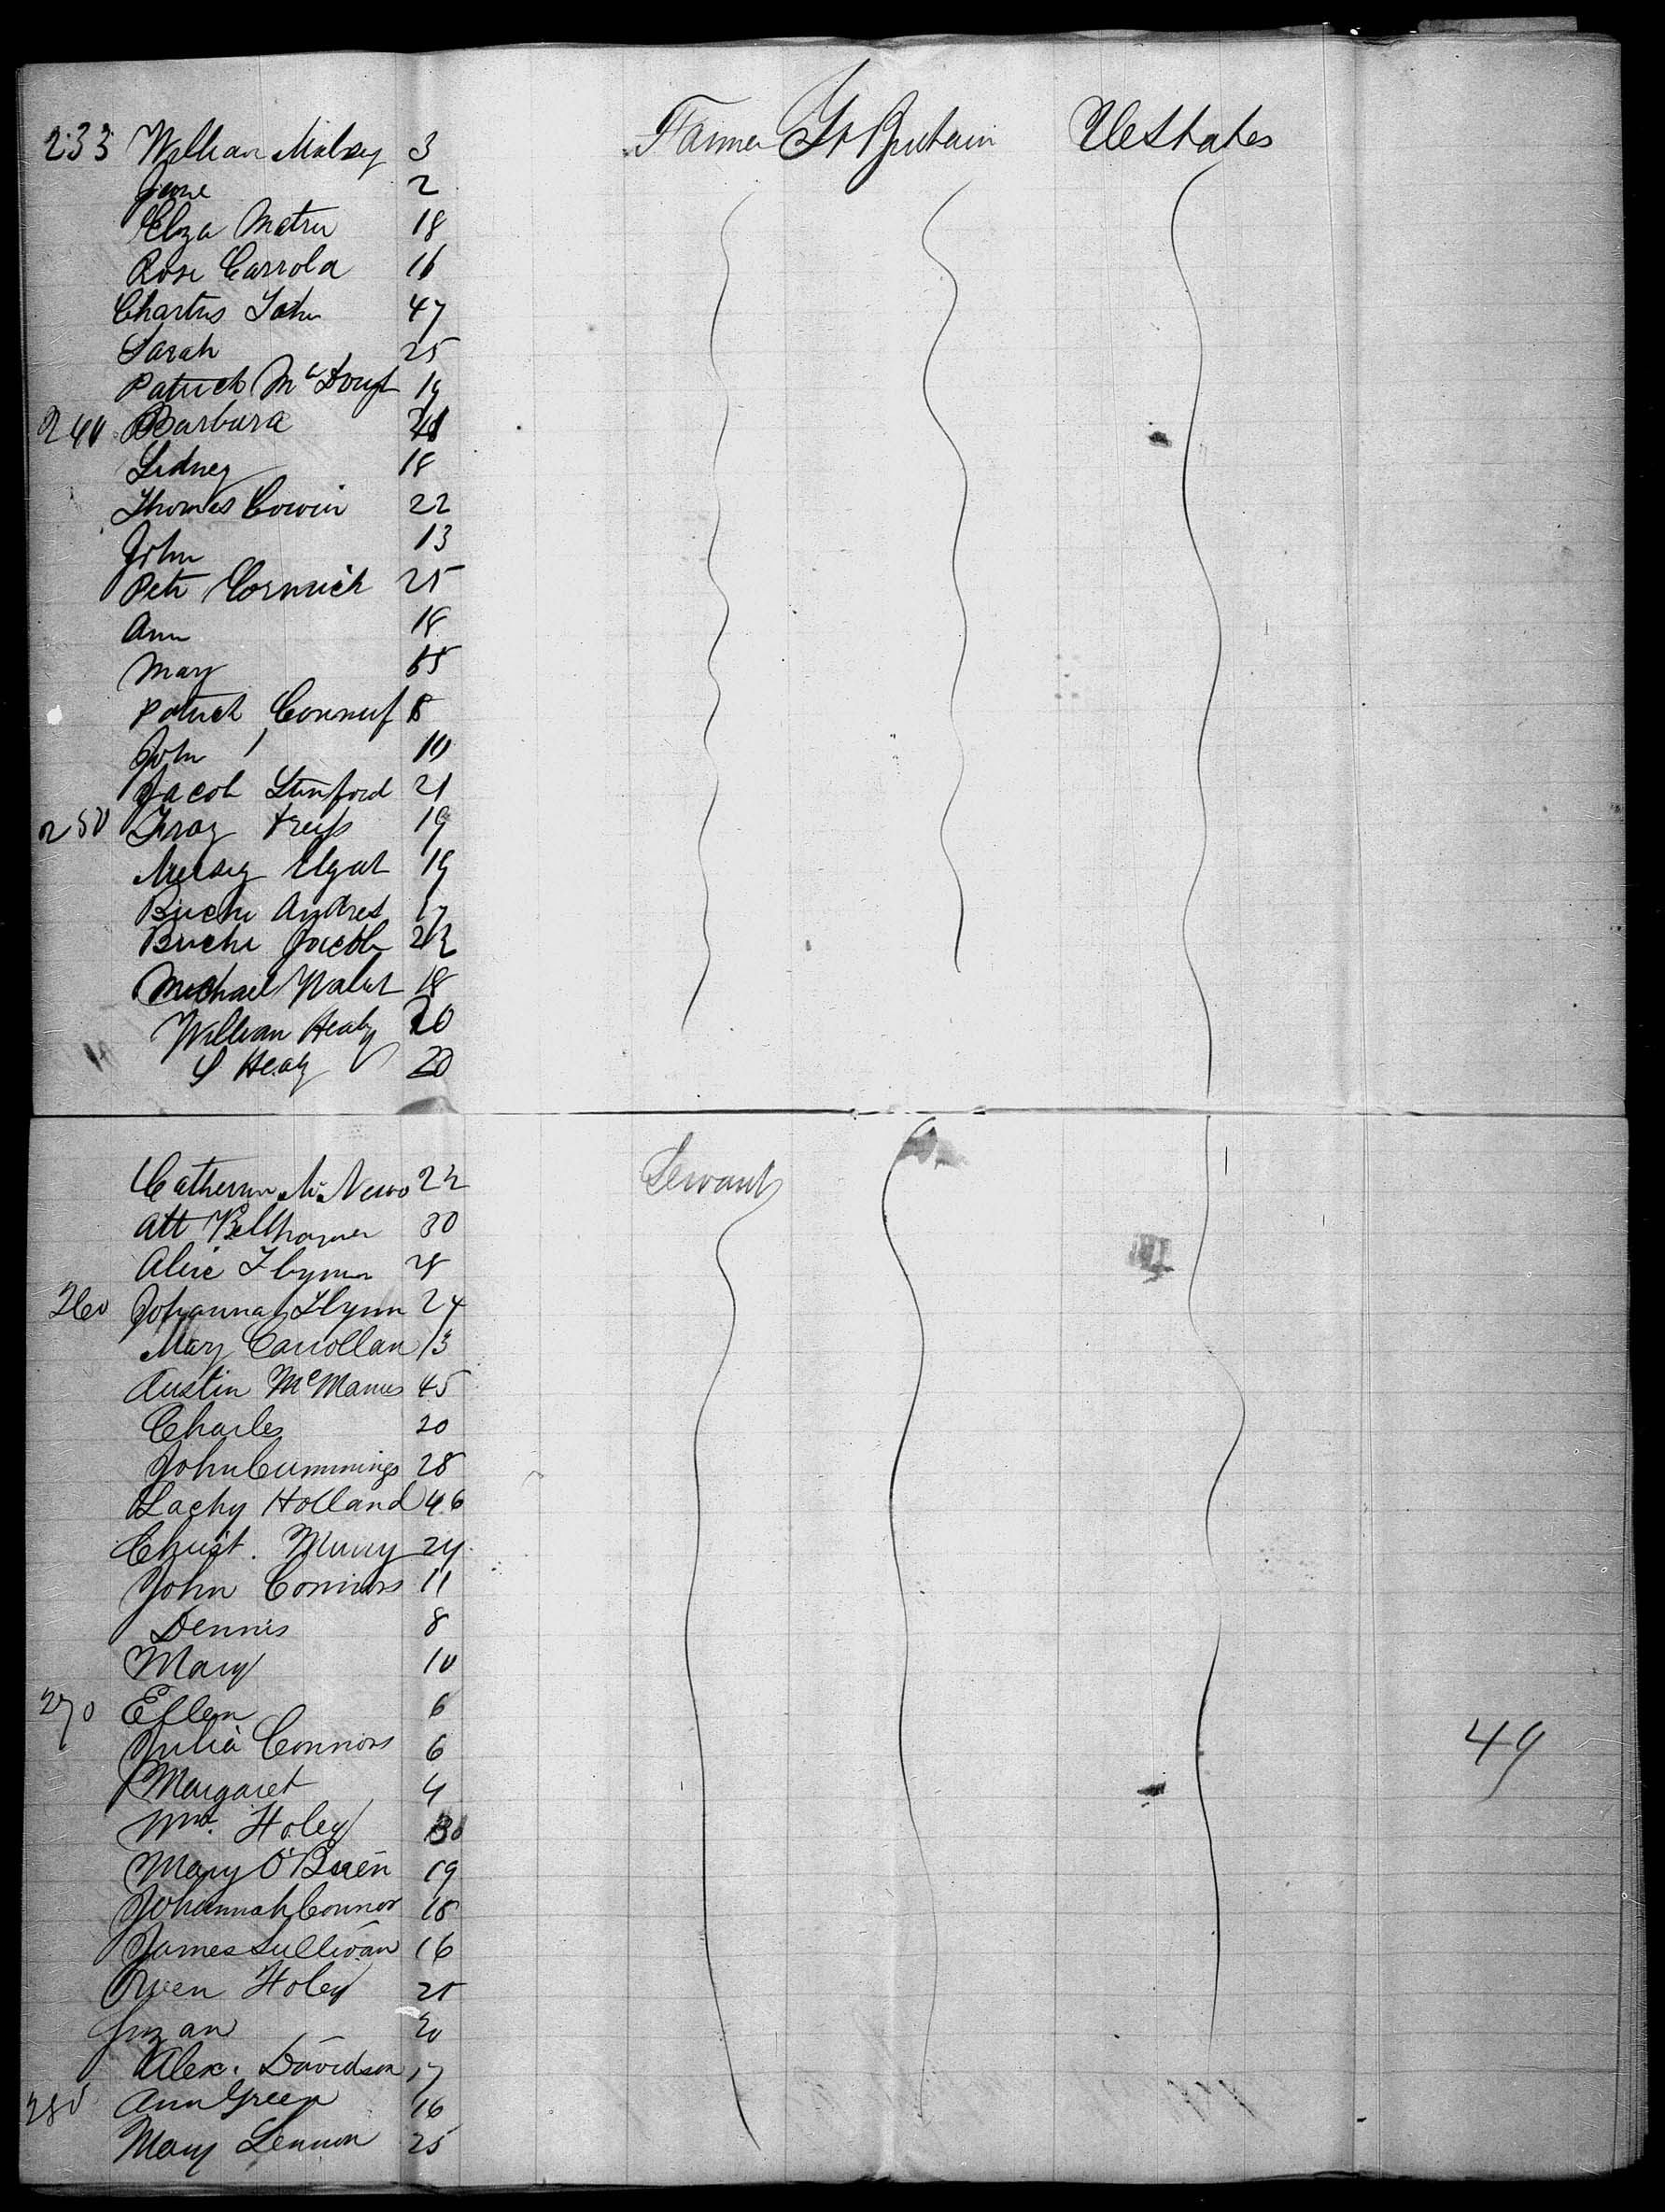 233 William 3 Farmer Gt Britain Ue States
Jane 2
Eliza 18
Rose Carrola 16
Charters John 47
Sarah 25
Patrick 19
240 Barbara
Sidney 18
Thomas Cowin 22
John 13
Petr Cormick 25
Ann 18
Mary
Patrick
John 10
Jacob Stinford 21
250 19
19
Buchi Andres 17
Buchi Jacob
Michael 18
William Healy 20
S Healy 20
Catherine 22 Servants
Att 30
Alice Flynn 28
260 Johanna Flynn 24
Mary Carrollan 13
Austin McManus 45
Charles 20
John Cummings 28
Lachy Holland 46
Christ. Murry 24
John Connors 11
Dennis 8
Mary 10
270 Ellen 6
Julia Connors 6 49
Margaret 4
Wm. Holey 30
Mary O'Brien 19
Johannah Connor 18
James Sullivan 16
Owen Holey 25
Suzan 20
Alex. Davidson 17
280 Ann Green 16
Mary Lennon 25